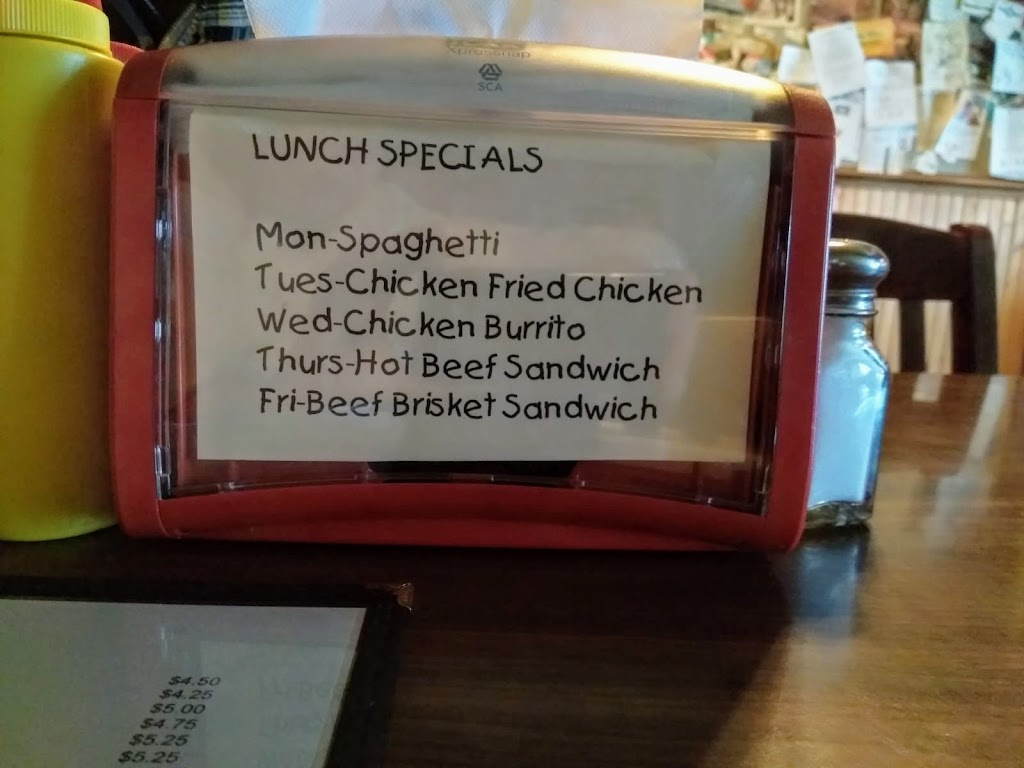 Xpressnap
SCA
LUNCH SPECIALS
Mon-Spaghetti
Tues-Chicken Fried Chicken
Wed-Chicken Burrito
Thurs-Hot Beef Sandwich
Fri-Beef Brisket Sandwich
$4.50
$4.25
$5.00
$4.75
$5.25
$5.25